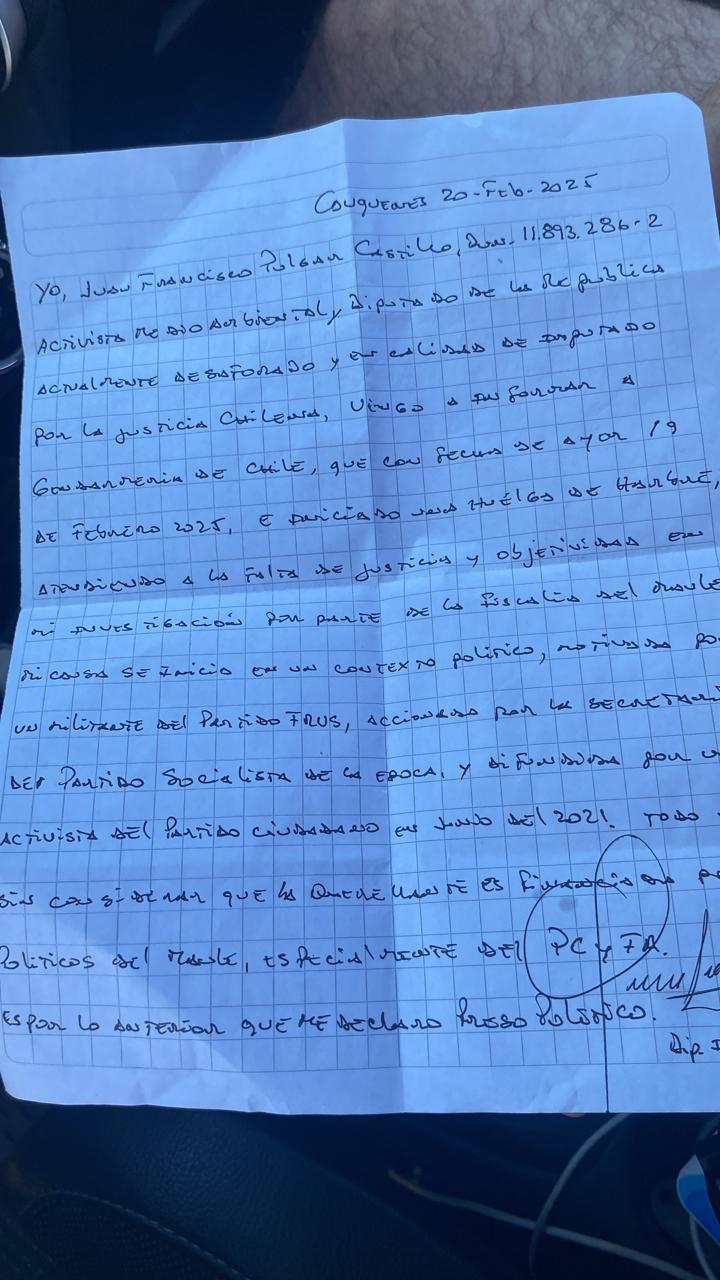 Cauquenes 20-Feb-2025
Yo, Juan Francisco Pulgar Castillo, Run. 11.893.286-2
Activista medioambiental y Diputado de la Republica
actualmente desaforado y en calidad de imputado
por la justicia Chilena, vengo a informar a
Gendarmeria de Chile, que con fecha de ayer 19
de Febrero 2025, e iniciado una Huelga de Hambre,
atendiendo a la falta de justicia y objetividad en
mi investigación por parte de la fiscalia del Maule
mi causa se inicio en un contexto político, motivada por
un militante del Partido FRVS, accionada por la secretaria
del Partido Socialista de la epoca, y difundida por un
activista del Partido ciudadano en Junio del 2021. Todo
sin considerar que la Querellante es financiada por
Politicos del Maule, especialmente del PC y FA.
Es por lo anterior que me declaro Presso Político.
Dip